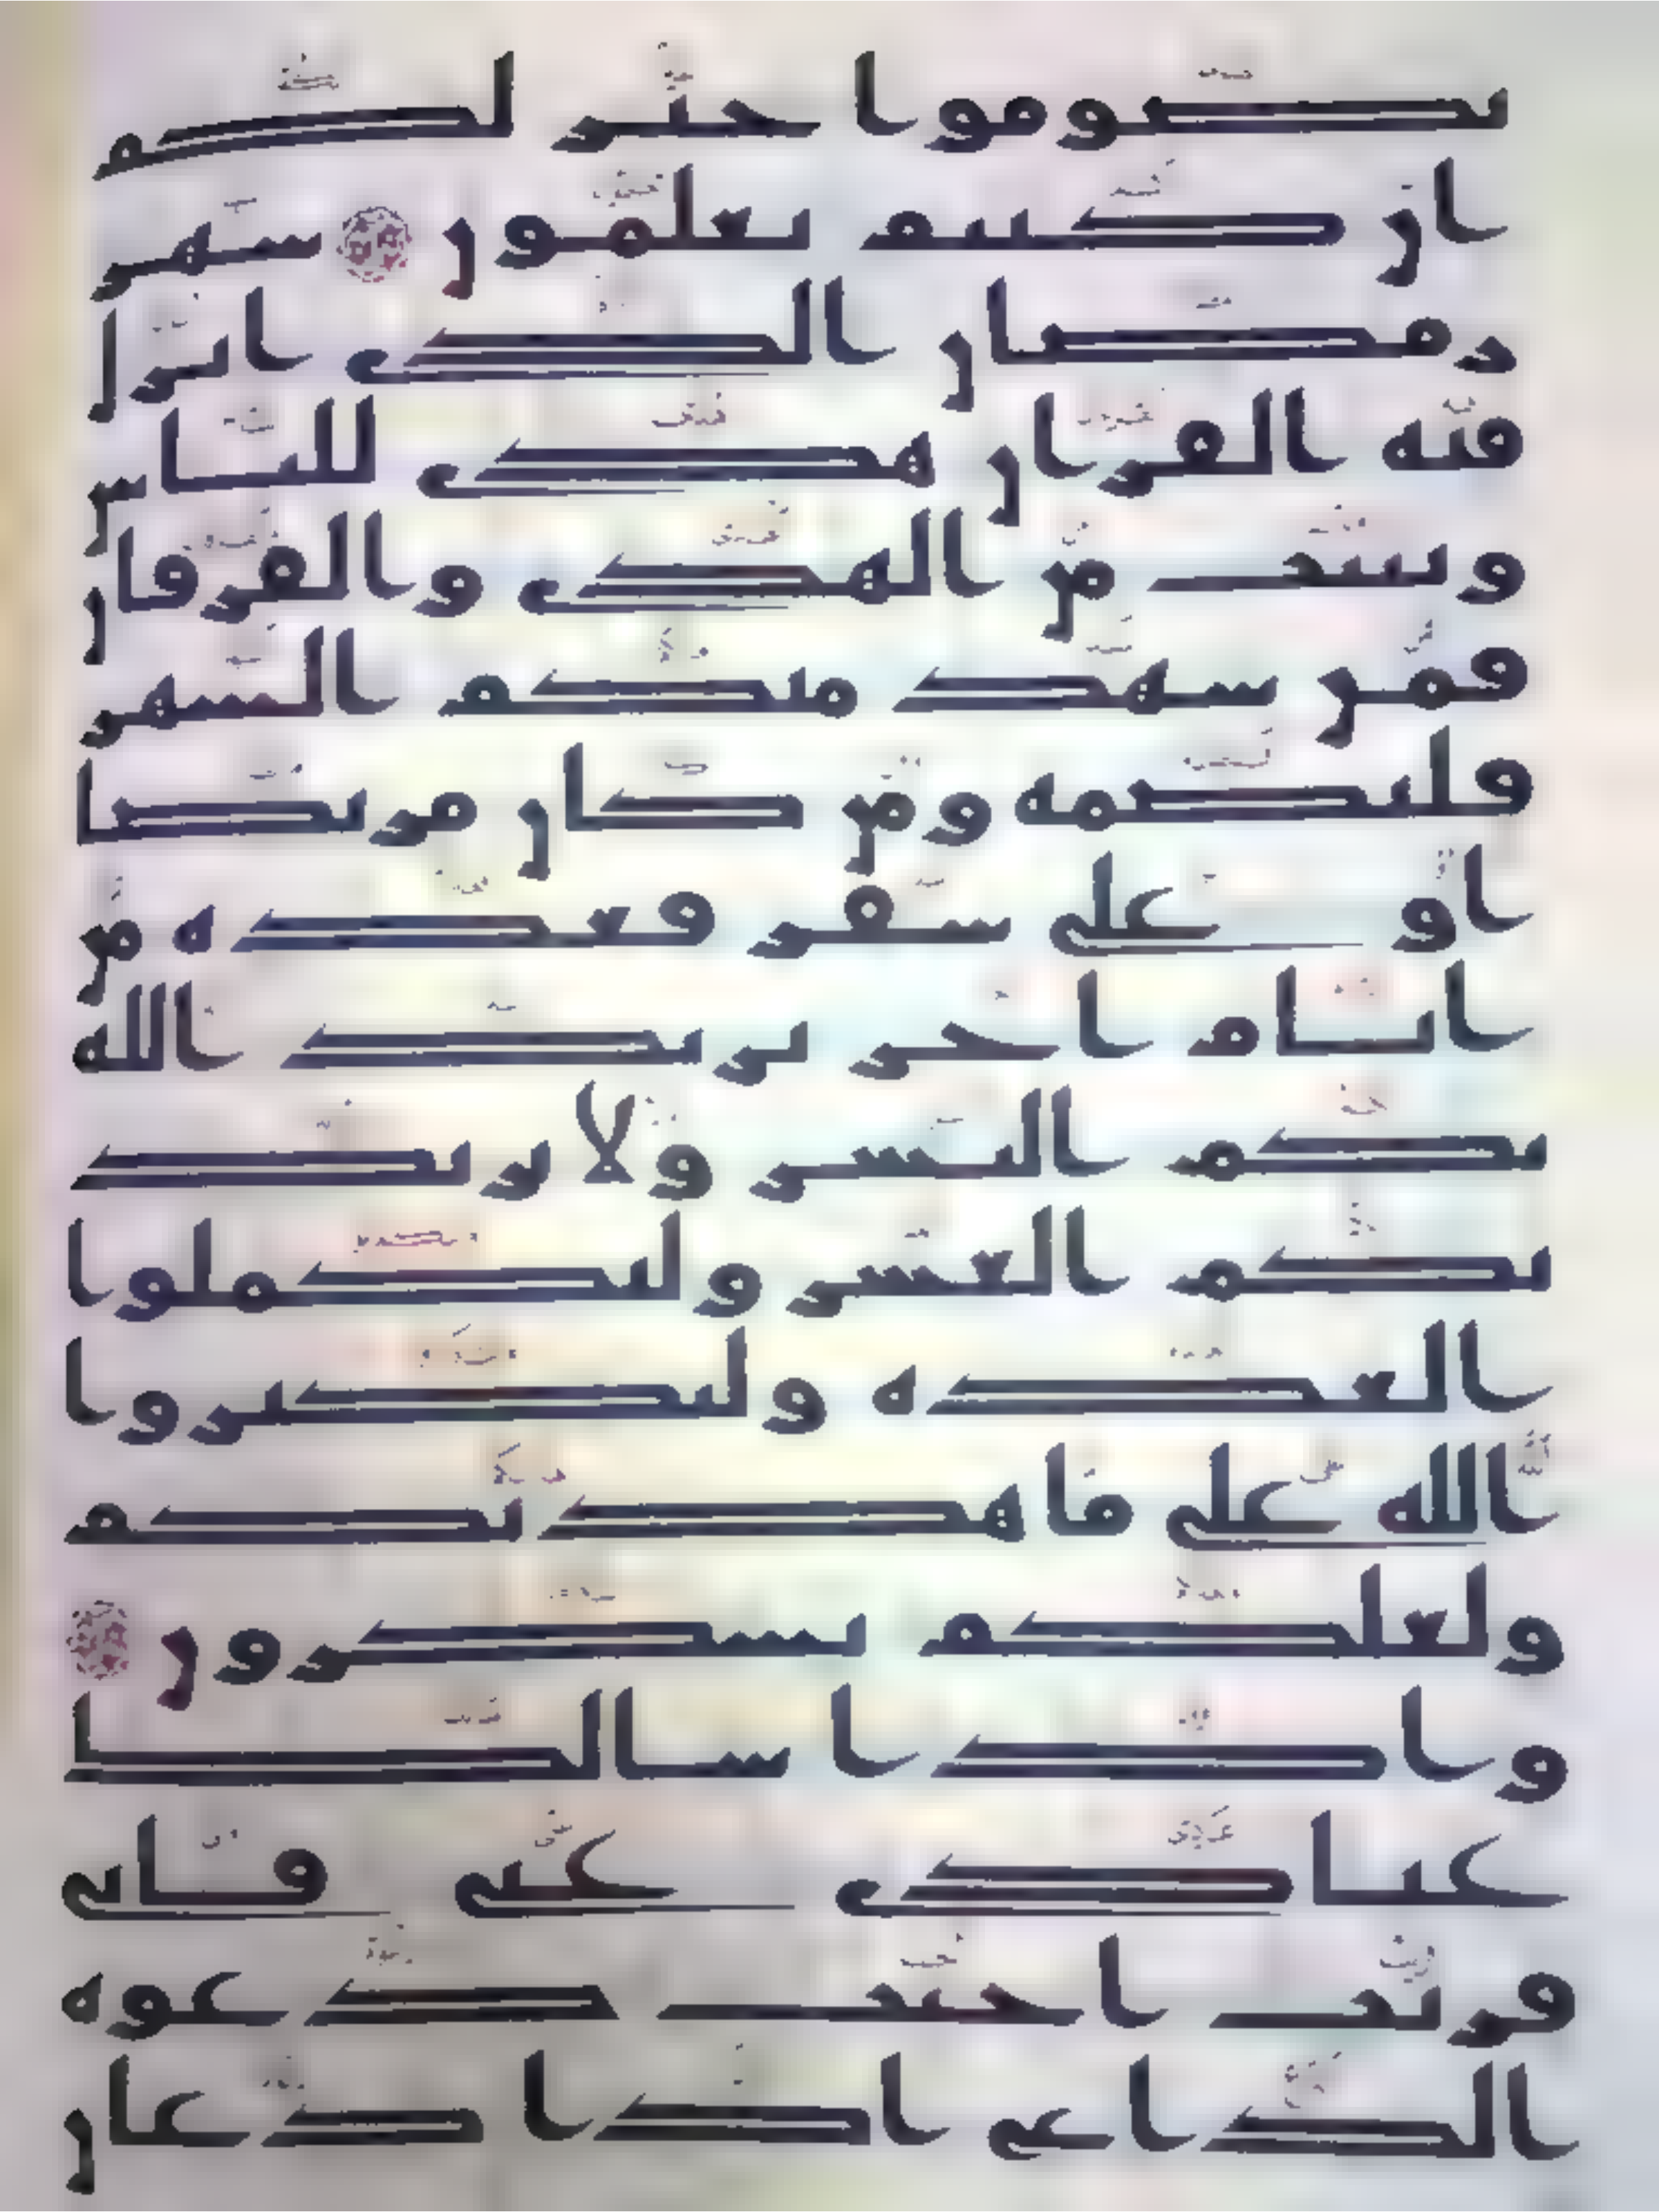 تصوموا خير لكم
ان كنتم تعلمون شهر
رمضان الذي انزل
فيه القران هدى للناس
وبينت من الهدى والفرقان
فمن شهد منكم الشهر
فليصمه ومن كان مريضا
او على سفر فعدة من
ايام اخر يريد الله
بكم اليسر ولا يريد
بكم العسر ولتكملوا
العدة ولتكبروا
الله على ما هديكم
ولعلكم تشكرون
واذا سالك
عبادي عني فاني
قريب اجيب دعوة
الداعي اذا دعان